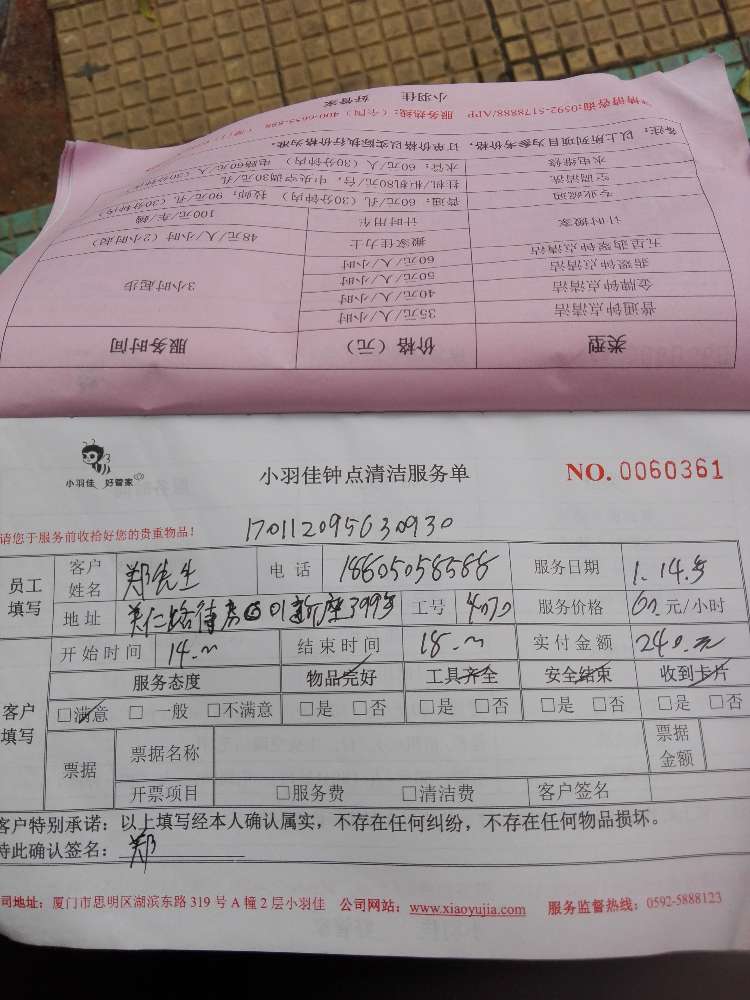 类型 价格(元) 服务时间
普通钟点清洁 35元/人/小时
金牌钟点清洁 40元/人/小时 3小时起步
翡翠钟点清洁 50元/人/小时
五星翡翠钟点清洁 60元/人/小时
计时搬家 搬家佳力士 48元/人/小时(2小时起)
计时用车 100元/车/趟
专业玻璃 普通:60元/孔(30分钟内) 技师:90元/孔(30分钟内)
空调清洗 挂机/柜机80元/台,中央空调30元/孔
水电维修 水管:60元/人(30分钟内) 电路60元/人(30分钟内)
备注:以上所列项目为参考价格,订单价格以实际执行价格为准。
*请咨询:0592-5178888/APP 服务热线:(全国)400-6655-888
小羽佳 好管家
小羽佳 好管家
小羽佳钟点清洁服务单
NO. 0060361
请您于服务前收拾好您的贵重物品!
170112095630930
员工填写
客户姓名 郑先生 电话 18605058588 服务日期 1.14号
地址 工号 4070 服务价格 60元/小时
开始时间 14 结束时间 18 实付金额 240元
客户填写
服务态度 物品完好 工具齐全 安全结束 收到卡片
□满意 □一般 □不满意 □是 □否 □是 □否 □是 □否 □是 □否
票据 票据名称 票据金额
开票项目 □服务费 □清洁费 客户签名
客户特别承诺:以上填写经本人确认属实,不存在任何纠纷,不存在任何物品损坏。
特此确认签名: 郑
司地址:厦门市思明区湖滨东路319号A幢2层小羽佳 公司网站:www.xiaoyujia.com 服务监督热线:0592-5888123